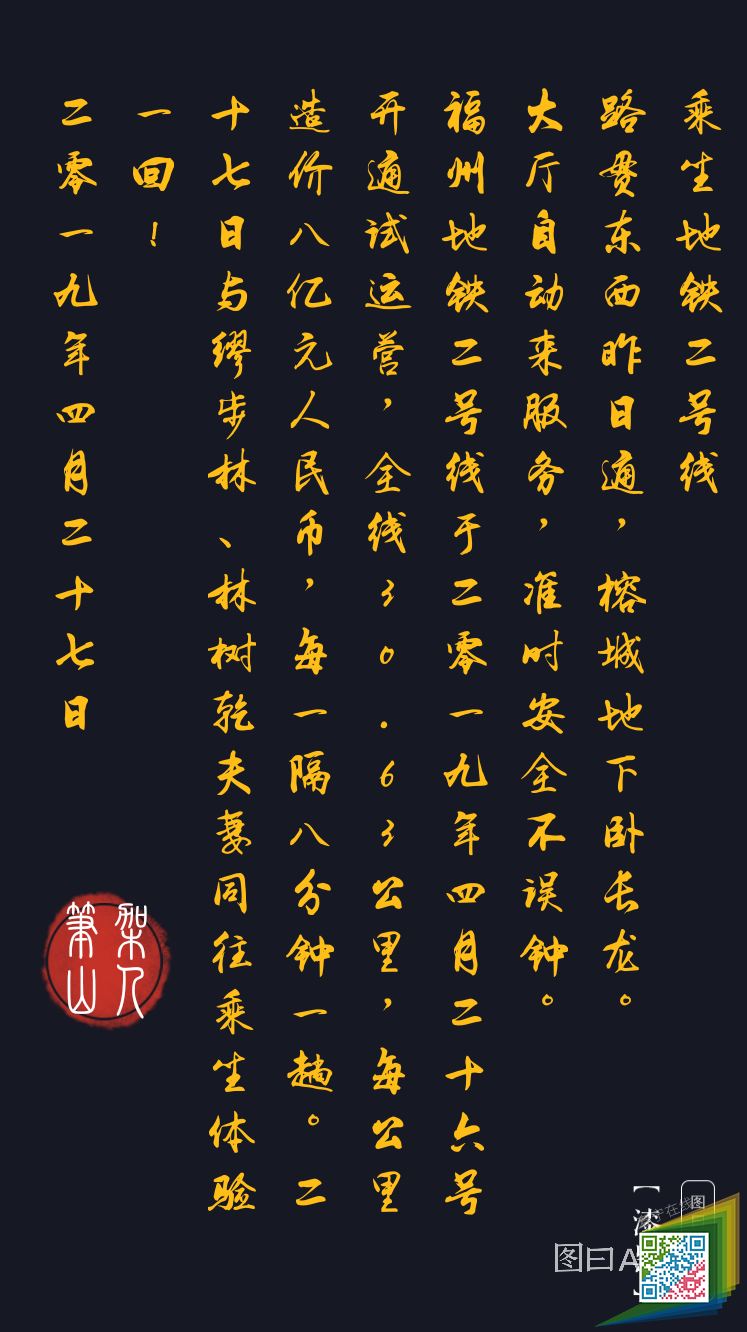 乘坐地铁二号线
路贯东西昨日通，榕城地下卧长龙。
大厅自动来服务，准时安全不误钟。
福州地铁二号线于二零一九年四月二十六号
开通试运营，全线30.63公里，每公里
造价八亿元人民币，每一隔八分钟一趟。二
十七日与缪步林、林树乾夫妻同往乘坐体验
一回！
二零一九年四月二十七日
架人
笔山
图
【漆
图曰A
在线